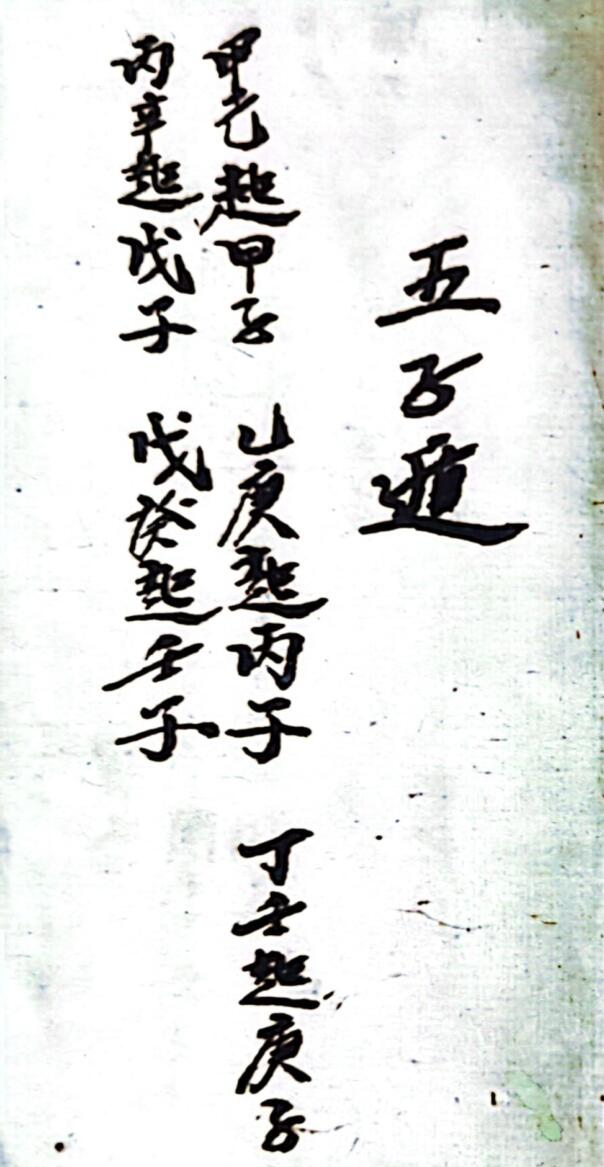 五子遁
甲己起甲子 乙庚起丙子 丁壬起庚子
丙辛起戊子 戊癸起壬子